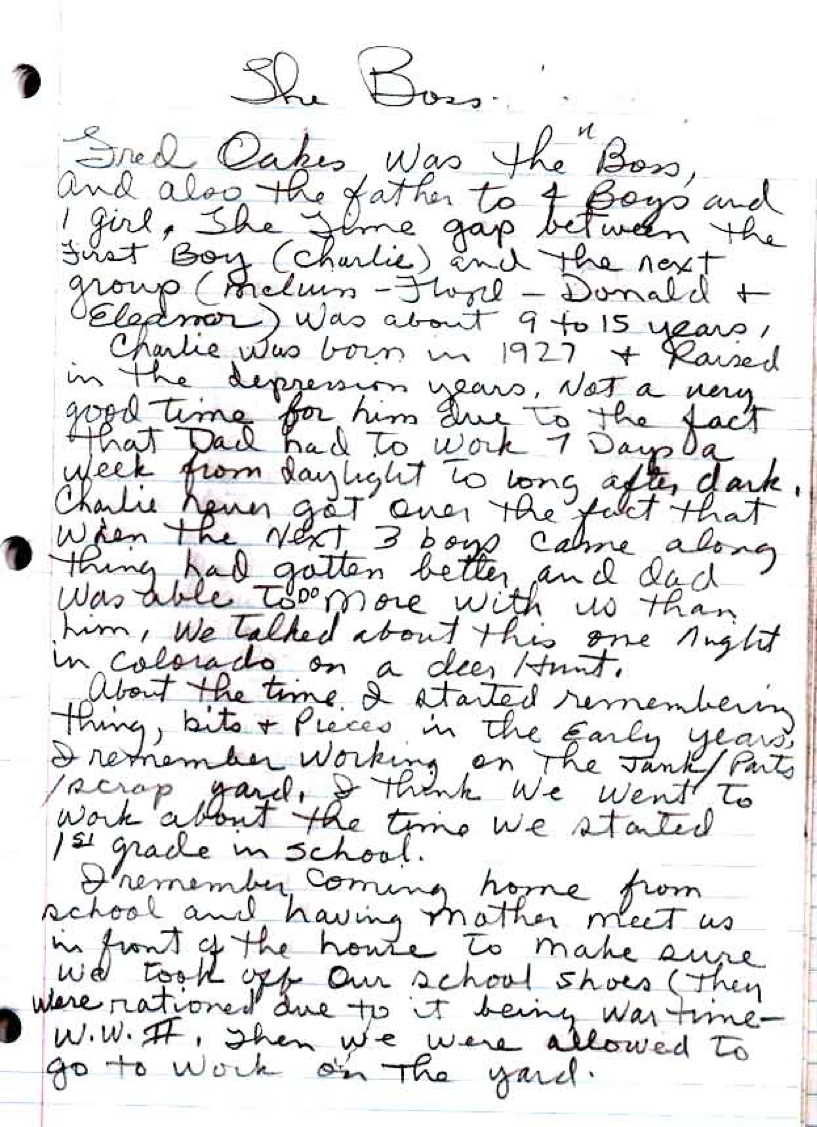 The Boss.
Fred Oakes was the "Boss,
and also the father to 4 Boys and
1 girl. The Time gap between the
First Boy (Charlie) and the next
group (Melvin - Floyd - Donald +
Eleanor) was about 9 to 15 years,
Charlie was born in 1927 + Raised
in the depression years. Not a very
good time for him due to the fact
that Dad had to work 7 Days a
week from daylight to long after dark.
Charlie never got over the fact that
when the Next 3 boys came along
thing had gotten better and dad
was able to DO more with us than
him, We talked about this one night
in Colorado on a deer Hunt.
About the time I started remembering
thing, bits + Pieces in the Early years,
I remember working on The Junk/Parts
/scrap yard. I think we went to
work about the time we started
1st grade in school.
I remember coming home from
school and having Mother meet us
in front of the house to make sure
we took off our school shoes (they
were rationed due to it being war time-
W.W. II. Then we were allowed to
go to work on The yard.